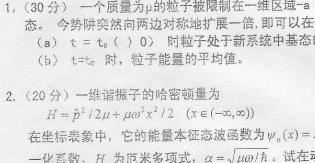 1, (30分) 一个质量为μ的粒子被限制在一维区域-a
态。 今势阱突然向两边对称地扩展一倍, 即可以在
(a) t = t₀ ( 〉 0) 时粒子处于新系统中基态
(b) t=t₀ 时, 粒子能量的平均值。
2, (20分) 一维谐振子的哈密顿量为
H = p̂²/2μ + μω²x²/2 (x∈(-∞,∞))
在坐标表象中, 它的能量本征态波函数为ψₙ(x) =
一化系数, H 为厄米多项式, α = √μω/ħ . 试在动